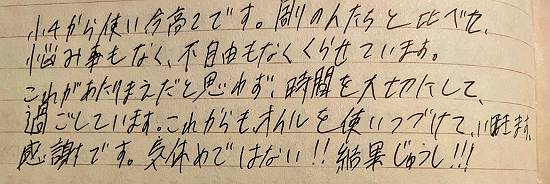 小4から使い今高2です。周りの人たちと比べて、
悩み事もなく、不自由もなくくらせています。
これがあたりまえだと思わず、時間を大切にして、
過ごしています。これからも、オイルを使いつづけて、いきます。
感謝です。気休めではない!! 結果じゅうし!!!